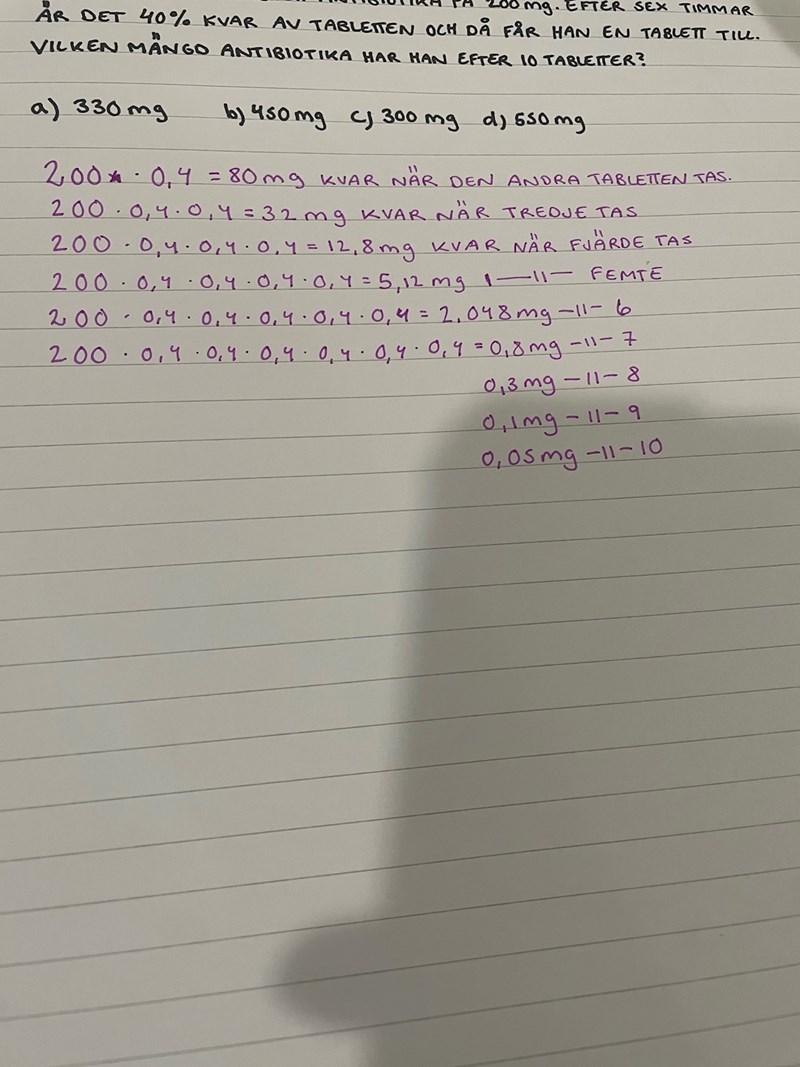 PÅ 200 mg. EFTER SEX TIMMAR
ÄR DET 40% KVAR AV TABLETTEN OCH DÅ FÅR HAN EN TABLETT TILL.
VILKEN MÄNGD ANTIBIOTIKA HAR HAN EFTER 10 TABLETTER?
a) 330 mg b) 450 mg c) 300 mg d) 550 mg
200 · 0,4 = 80 mg KVAR NÄR DEN ANDRA TABLETTEN TAS.
200 · 0,4 · 0,4 = 32 mg KVAR NÄR TREDJE TAS
200 · 0,4 · 0,4 · 0,4 = 12,8 mg KVAR NÄR FJÄRDE TAS
200 · 0,4 · 0,4 · 0,4 · 0,4 = 5,12 mg 1 —11— FEMTE
200 · 0,4 · 0,4 · 0,4 · 0,4 · 0,4 = 2,048 mg -11- 6
200 · 0,4 · 0,4 · 0,4 · 0,4 · 0,4 · 0,4 = 0,8 mg -11- 7
0,3 mg -11- 8
0,1 mg -11- 9
0,05 mg -11- 10